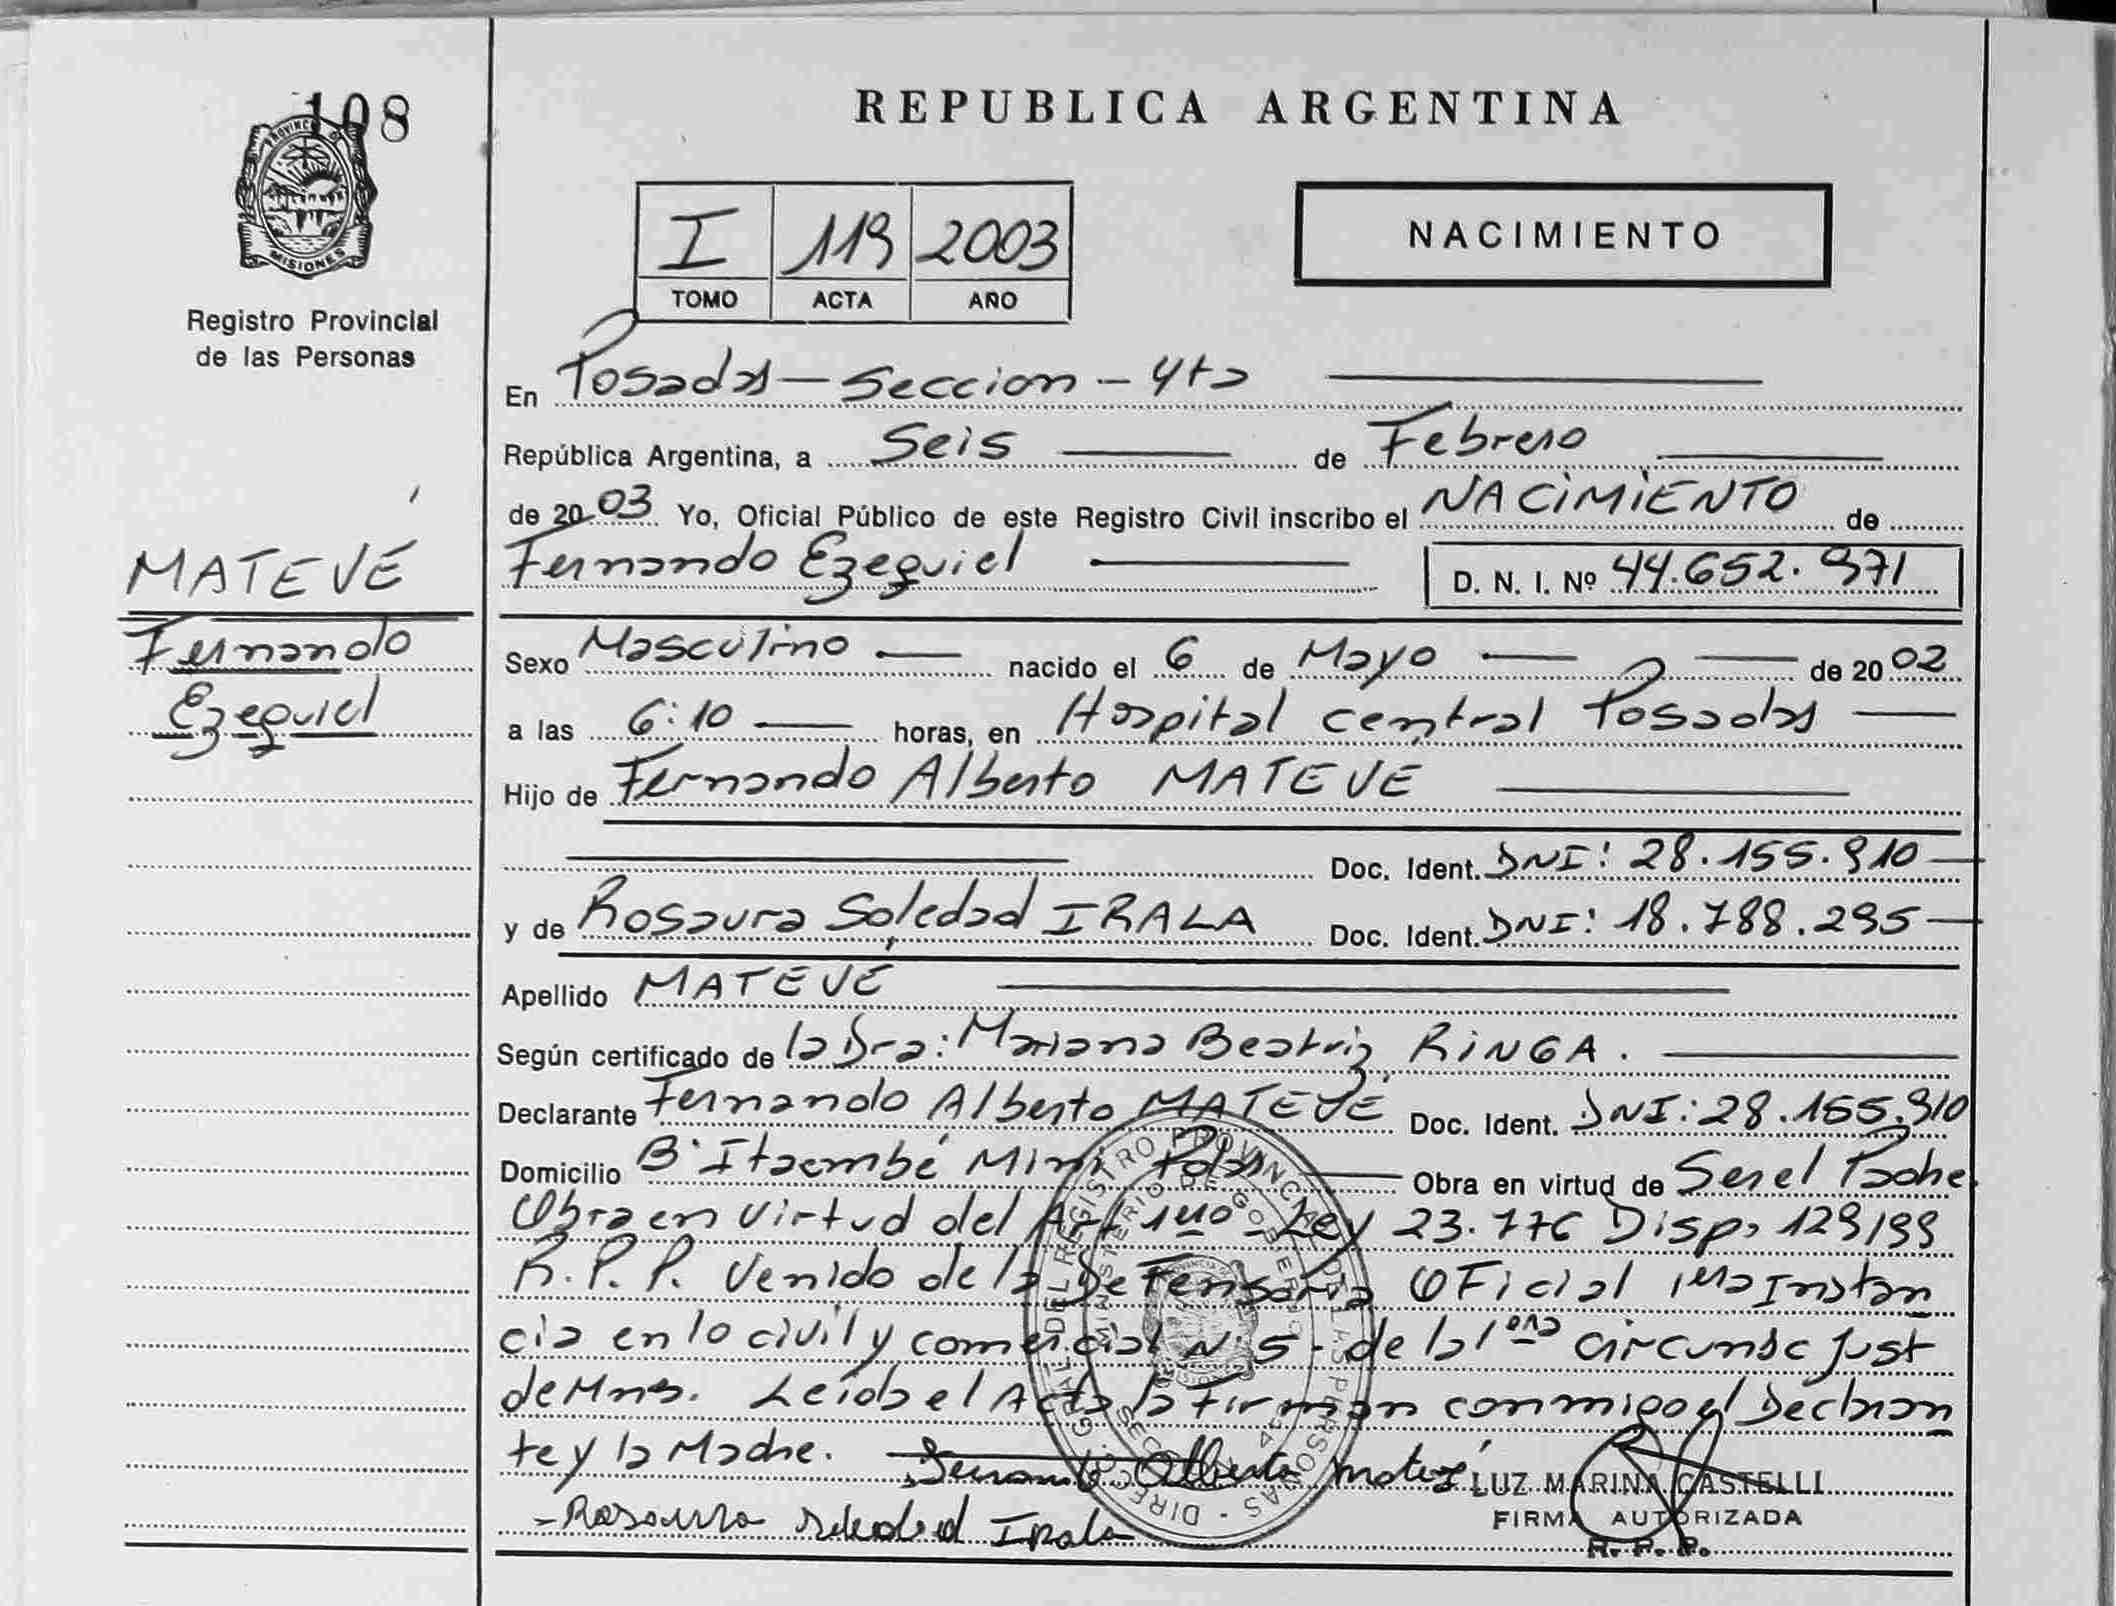 108
PROVINCIA
MISIONES
Registro Provincial
de las Personas
REPUBLICA ARGENTINA
I 119 2003
TOMO ACTA AÑO
NACIMIENTO
En Posadas - Seccion - 4ta
República Argentina, a Seis de Febrero
de 2003 Yo, Oficial Público de este Registro Civil inscribo el NACIMIENTO de
Fernando Ezequiel D. N. I. Nº 44.652.971
MATEVÉ
Fernando
Ezequiel
Sexo Masculino nacido el 6 de Mayo de 2002
a las 6:10 horas, en Hospital central Posadas
Hijo de Fernando Alberto MATEVE
Doc. Ident. DNI: 28.155.910
y de Rosaura Soledad IRALA Doc. Ident. DNI: 18.788.295
Apellido MATEVÉ
Según certificado de la Dra: Mariana Beatriz RINGA.
Declarante Fernando Alberto MATEVÉ Doc. Ident. DNI: 28.155.910
Domicilio B° Itaembé Mini Pdas Obra en virtud de Ser el Padre
Obra en virtud del Art 1ero Ley 23.776 Disp. 129/99
R.P.P. Venido de la Defensoria Oficial 1era Instan
cia en lo civil y comercial N: 5 - de la 1era circunsc Just
de Mnes. Leída el Acta la Firman conmigo el Declaran
te y la Madre. Fernando Alberto Matevé LUZ MARINA CASTELLI
- Rosaura Soledad Irala FIRMA AUTORIZADA
R. P. P.
DIREC. GRAL. DEL REGISTRO PROVINCIAL DE LAS PERSONAS
MINISTERIO DE GOBIERNO